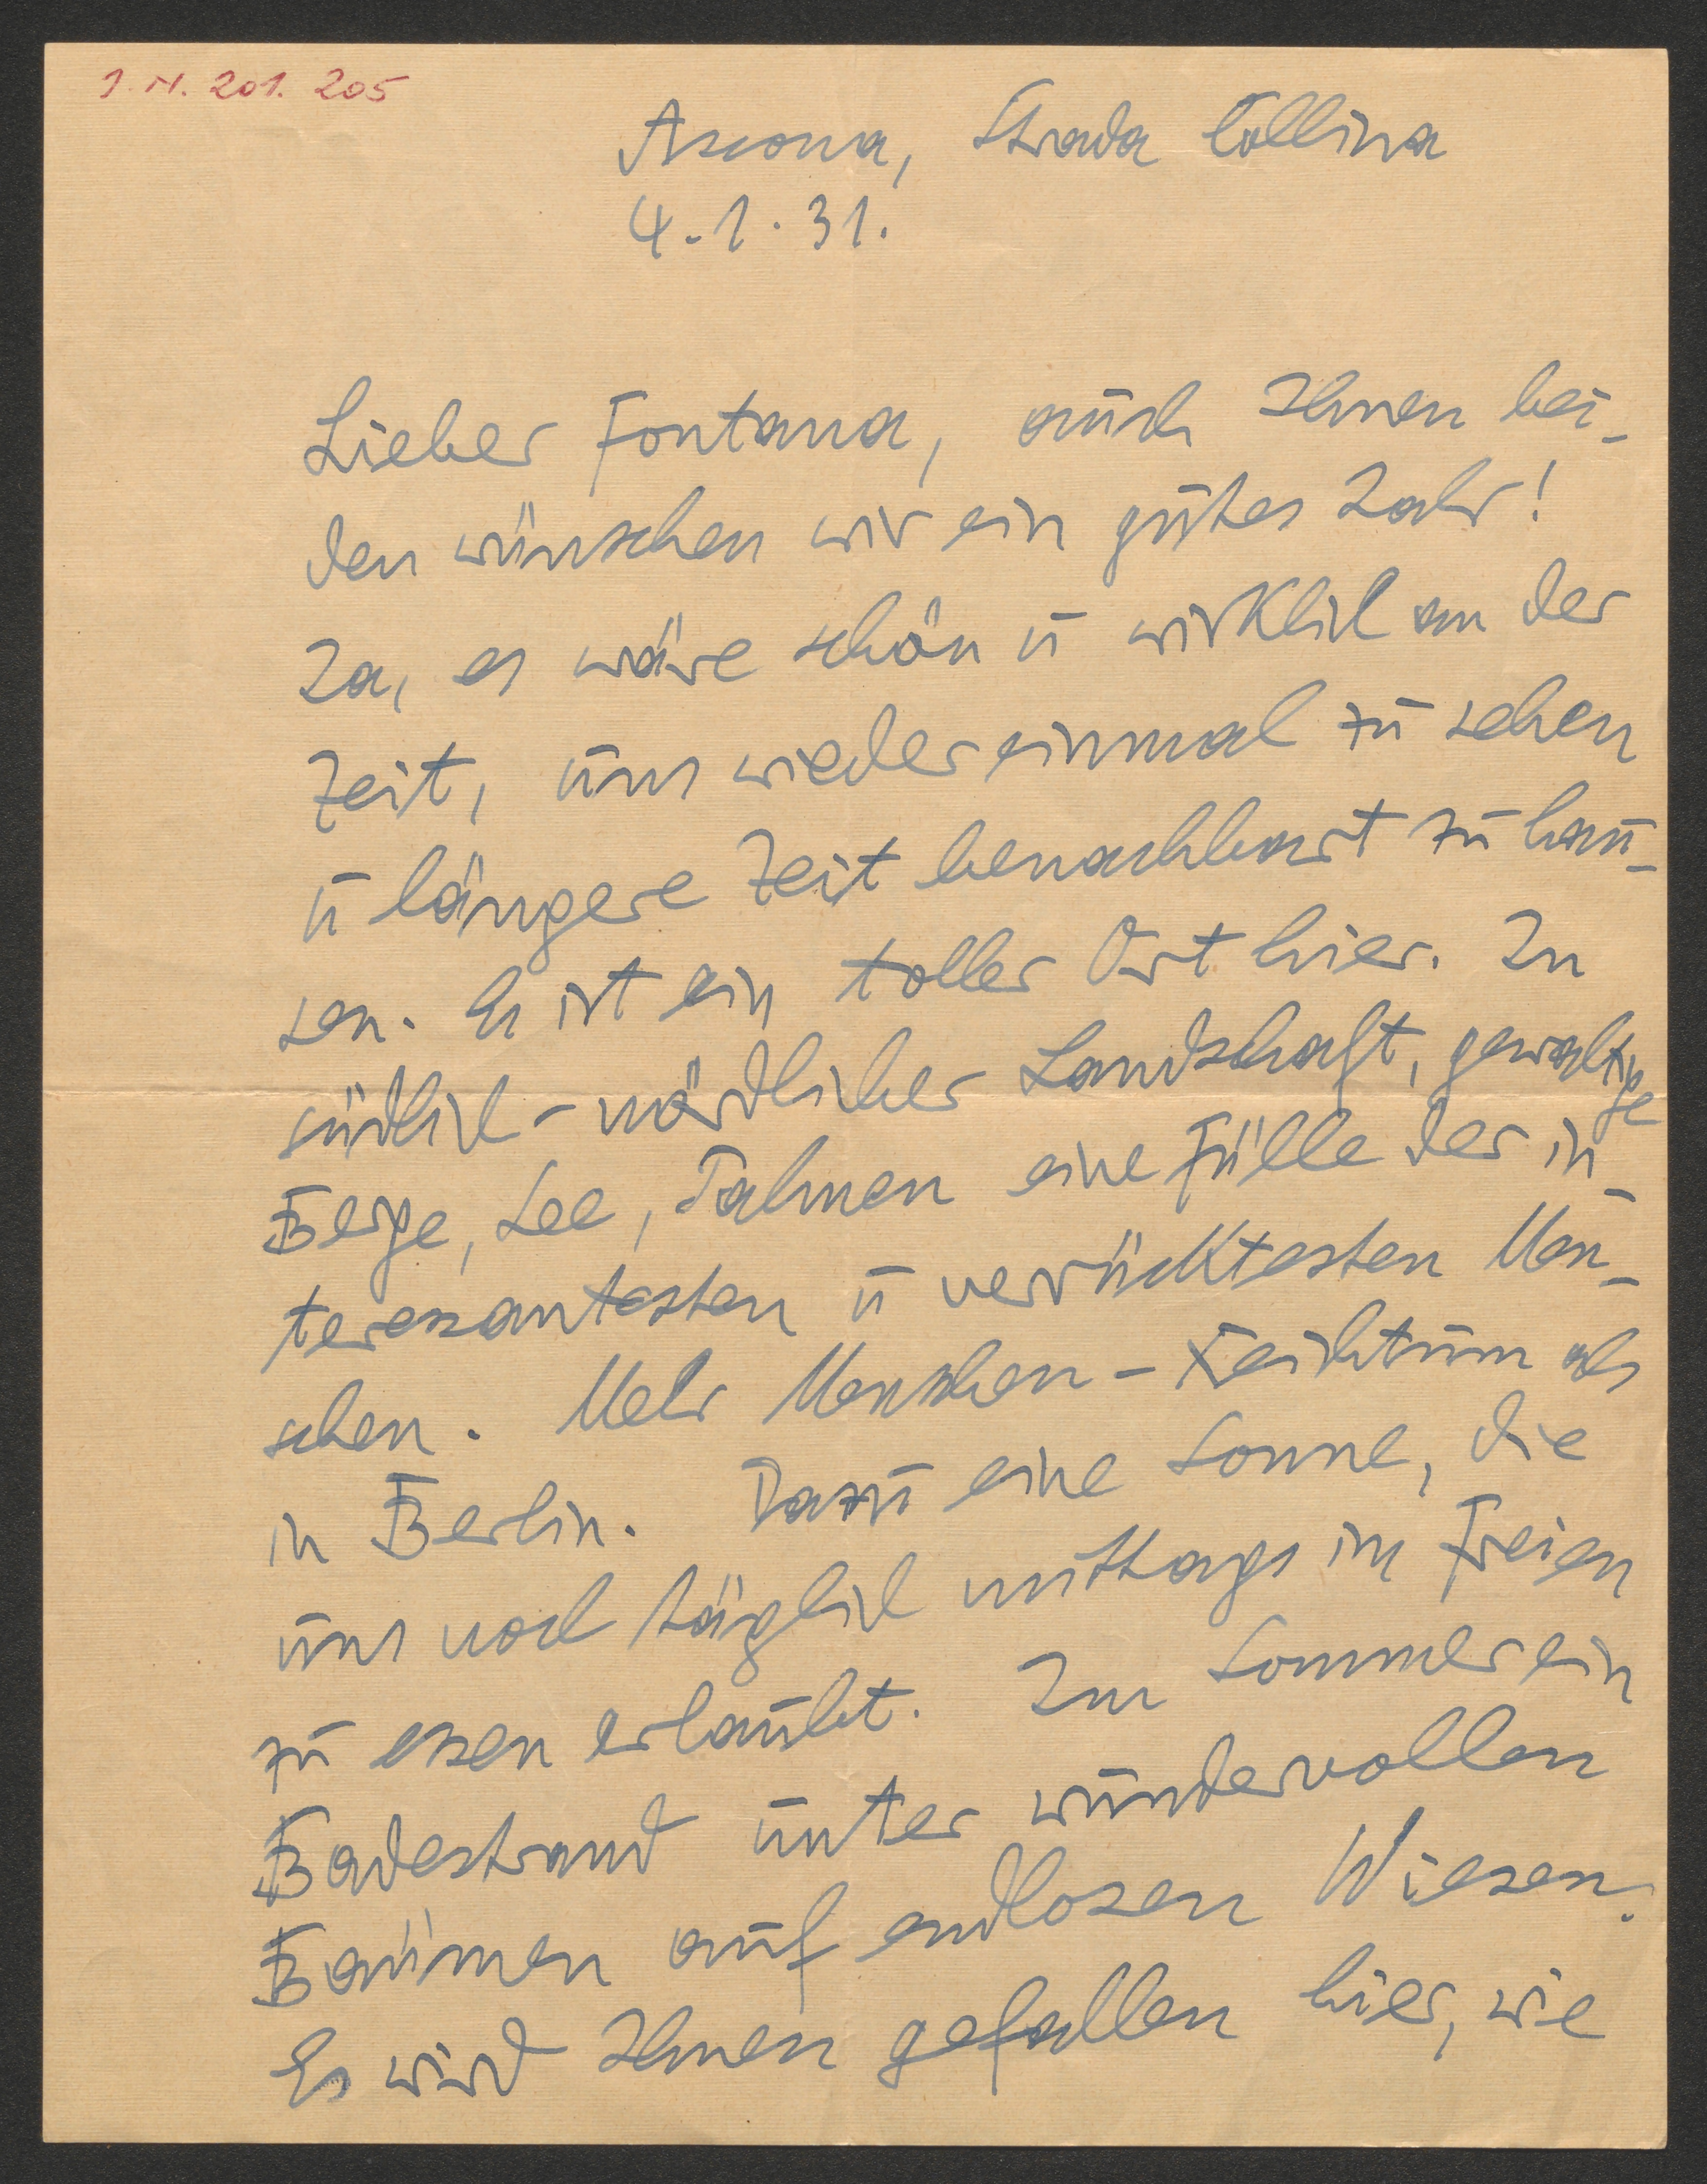 I.N. 201.205
Ascona, Strada Collina
4.1.31.
Lieber Fontana, auch Ihnen bei-
den wünschen wir ein gutes Jahr!
Ja, es wäre schön u wirklich an der
Zeit, uns wieder einmal zu sehen
u längere Zeit benachbart zu hau-
sen. Es ist ein toller Ort hier. In
südlich-nördlicher Landschaft, gewaltige
Berge, See, Palmen eine Fülle der in-
teressantesten u verrücktesten Men-
schen. Mehr Menschen-Reichtum als
in Berlin. Dazu eine Sonne, die
uns noch täglich mittags im Freien
zu essen erlaubt. Im Sommer ein
Badestrand unter wundervollen
Bäumen auf endlosen Wiesen.
Es wird Ihnen gefallen hier, wie